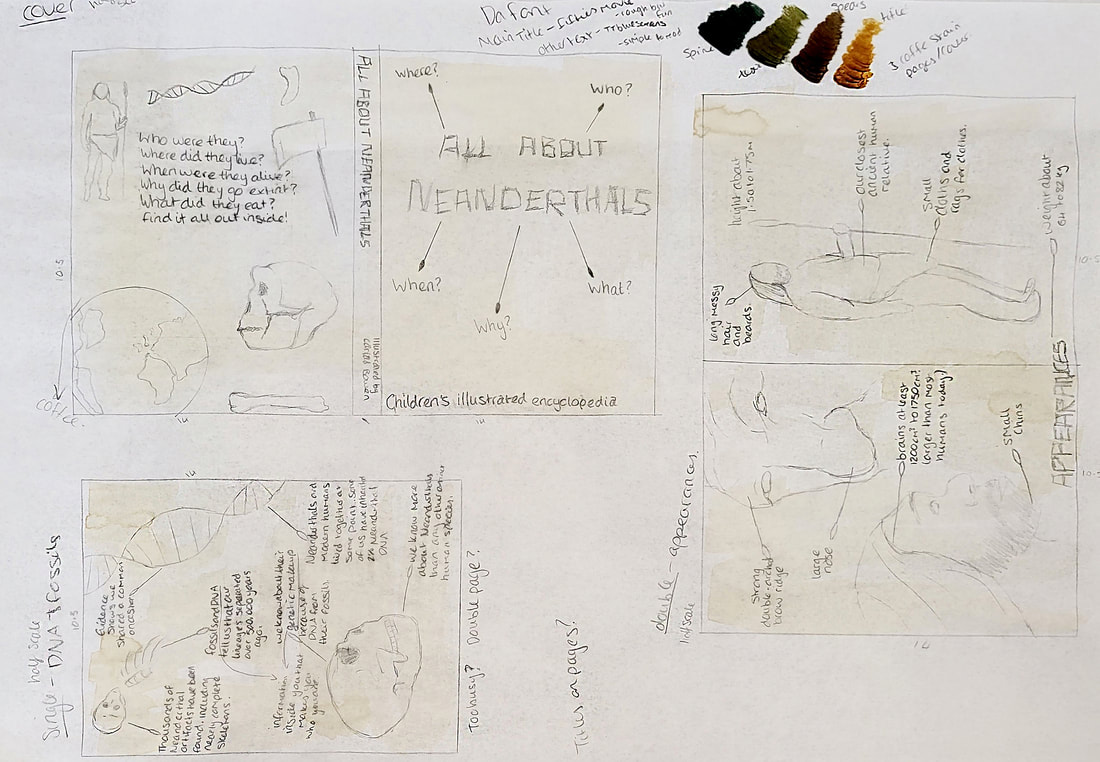 cover
Dafont
Main Title -
other text -
- simple to read
spine
text
title
3 coffee stain
pages / cover
Who were they?
Where did they live?
When were they alive?
Why did they go extinct?
What did they eat?
Find it all out inside!
10.5
14
ALL ABOUT NEANDERTHALS
Illustrated by
where?
Who?
ALL ABOUT
NEANDERTHALS
When?
Why?
what?
Children's illustrated encyclopedia
14
height about
1.50 to 1.75m
our closest
ancient human
relative.
small
cloths and
rags for clothes.
weight about
64 to 82 kg
long messy
hair
and
beards.
10.5
APPEARANCES
strong
double-arched
brow ridge
large
nose
brains at least
1200cm³ to 1750cm³
larger than most
humans today!
small
chins
double - appearances
half scale
single - DNA & fossils
half scale
10.5
14
Evidence
shows we
shared a common
ancestor.
Thousands of
Neanderthal
artifacts have been
found, including
nearly complete
skeletons.
fossils and DNA
tell us that our
lineages separated
over 500,000 years
ago.
we know about their
genetic makeup
because of
DNA from
their fossils
information
inside you that
makes you
who you are
Neanderthals and
modern humans
lived together at
some point. some
of us have inherited
2% Neanderthal
DNA
we know more
about Neanderthals
than any other
human species.
Too busy? Double page?
Titles on pages?